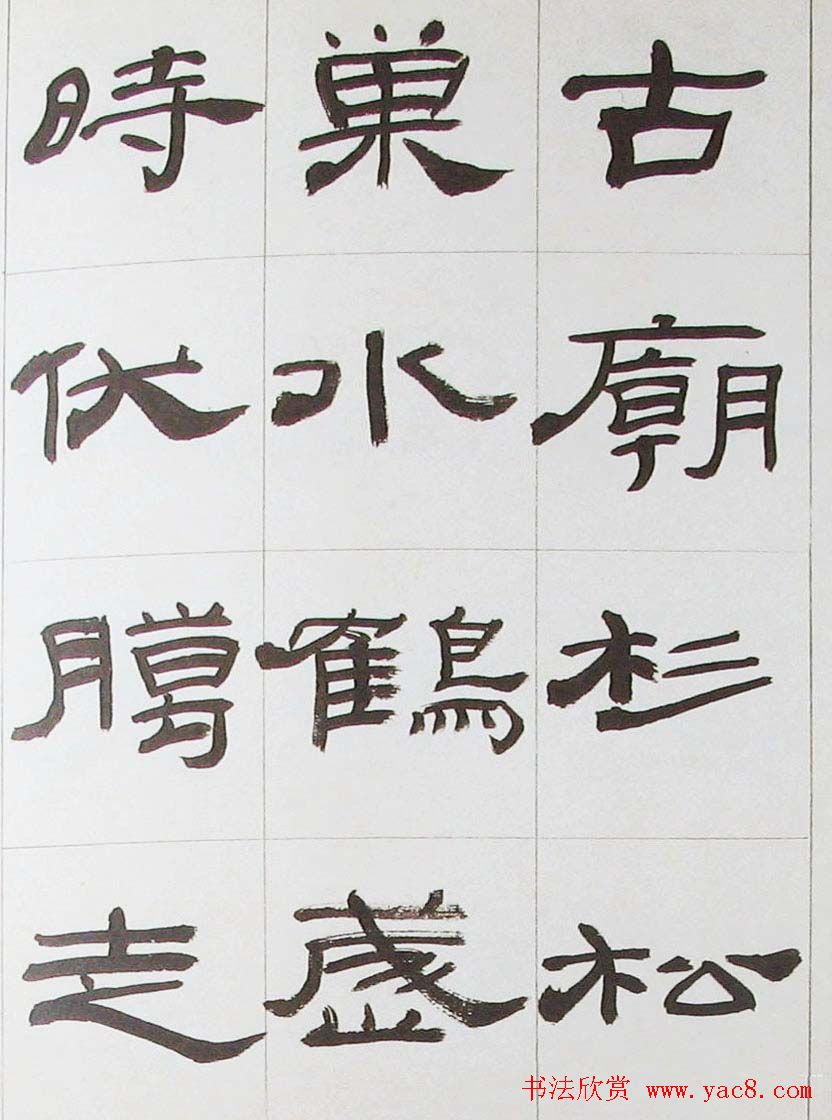 古廟杉松
巢水鶴歲
時伏臈走
书法欣赏 www.yac8.com